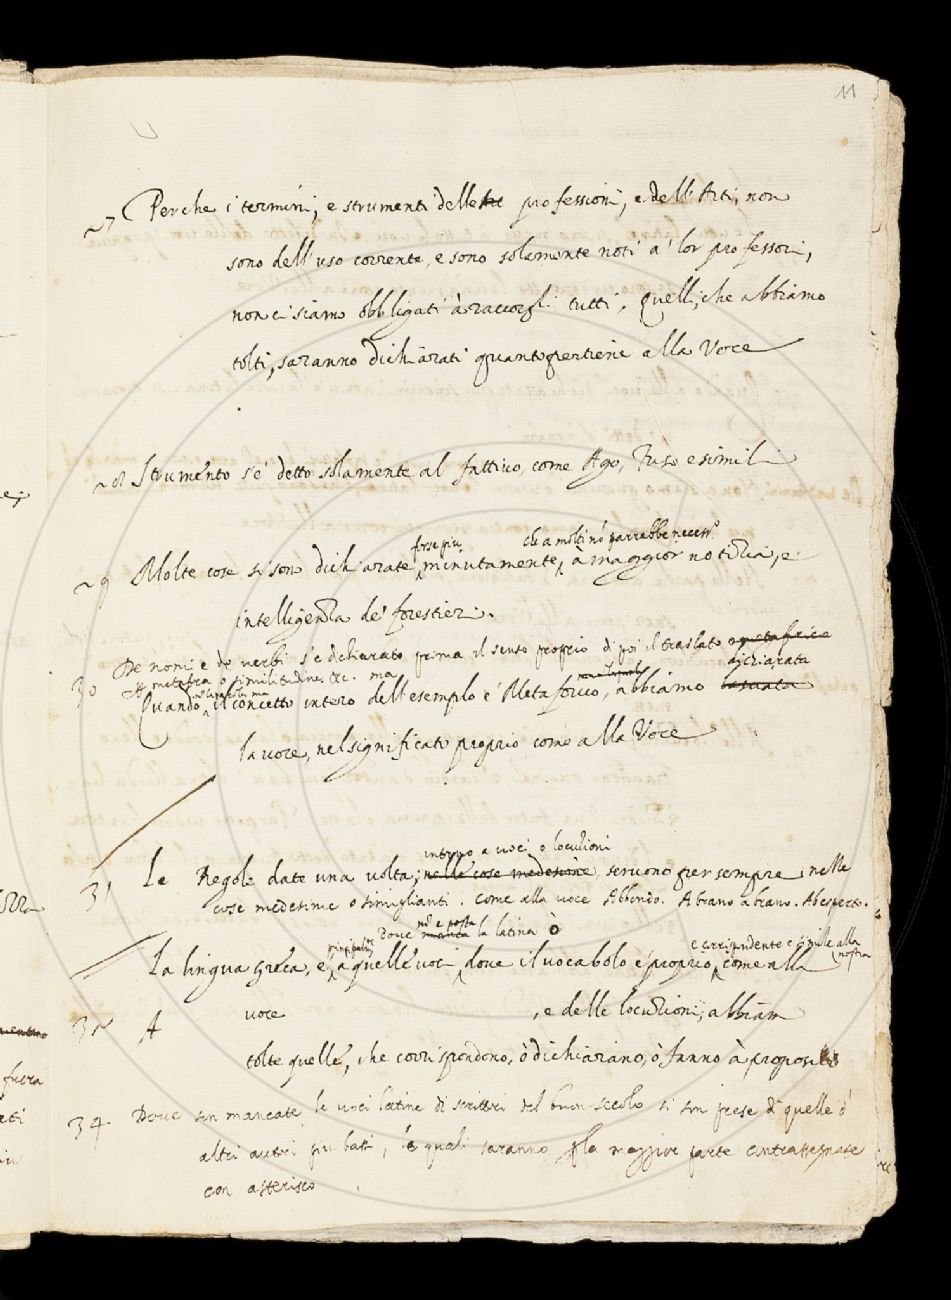 11
27 Perche i termini, e strumenti delle professioni, e dell'Arti, non
sono dell'uso corrente, e sono solamente noti a' lor professori,
non ci siamo obbligati à raccorgli tutti. Quelli, che abbiamo
tolti, saranno dichiarati quanto pertiene alla Voce
28 Strumento s'è detto solamente al fattivo, come Ago, Fuso e simili
forse più che a molti nō parrebbe necess.o
29 Molte cose si son dichiarate minutamente, à maggior notizia, e
intelligenza de' forestieri.
De nomi e de verbi s'è dichiarato prima il senso proprio di poi il traslato o metaforico
30 metafora o similitudine &c. ma dichiarata
Quando il concetto intero dell'esemplo è Metaforico, abbiamo lasciata
la voce, nel significato proprio come alla Voce
intorno a voci o locuzioni
31 Le Regole date una volta, nelle cose medesime, servono per sempre nelle
cose medesime o simiglianti. come alla voce Abbondo. A brano a brano. Ab esperto.
Dove manca la latina ò
nō è posta
principalm.te e corrispondente e simile alla nostra
La lingua Greca, è a quelle voci dove il vocabolo è proprio, come alla
32 A voce , e delle locuzioni, abbiam
tolte quelle, che corrispondono, ò dichiarano, ò fanno à proposito
34 Dove son mancate le voci latine di scrittori del buon secolo si son prese di quelle d'
altri autori più bassi, le quali saranno p la maggior parte contrassegnate
con asterisco